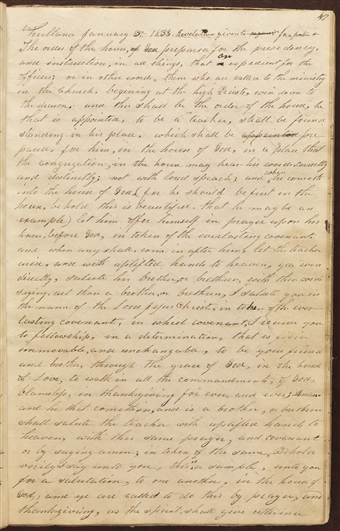 47
Kirtland January 3d. 1833. Revelation given to
The order of the house, of God prepared for the presidency,
and instruction, in all things, that are expedient for the
officers; or in other words, them who are called to the ministry
in the Church, begining at the high Priests, even down to
the deacon. and this shall be the order of the house, he
that is appointed, to be a teacher, shall be found
standing in his place. which shall be pre
pared. for him, in the house of God, in a place that
the congregation, in the house may hear his words carefully
and distinctly; not with loud speech; and when he cometh
into the house of God, (for he should be first in the
house, behold this is beautiful. that he may be an
example) let him offer himself in prayer upon his
knees, before God, in token of the everlasting covenant
and when any shall come in after him, let the teacher
arise, and with uplifted hands to heaven, yea even
directly, salute his brother, or brethren, with these words
saying, art thou a brother, or brethren, I salute you in
the name of the Lord Jesus Christ, in token of the ever
lasting covenant, in which covenant, I receive you
to fellowship, in a determination, that is given
immovable, and unchangable, to be your friend
and brother through the grace of God, in the bonds
of Love, to walk in all the commandments of God
blameless, in thanksgiving for ever and ever;
and he that cometh in, and is a brother, or brethren
shall salute the teacher with uplifted hands to
heaven, with this same prayer, and covenant
or by saying amen; in token of the same. Behold
verily I say unto you, this is a sample, unto you
for a salutation, to one another, in the house of
God, and ye are called to do this by prayer, and
thanksgiving, as the spirit shall give utterance